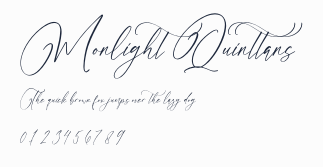 Monlight Quinttans
The quick brown fox jumps over the lazy dog
0 1 2 3 4 5 6 7 8 9